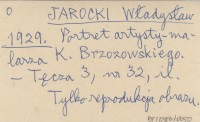 0 JAROCKI Władysław
1929. Portret artysty-ma-
larza K. Brzozowskiego.
– Tęcza 3, nr 32, il.
Tylko reprodukcja obrazu.